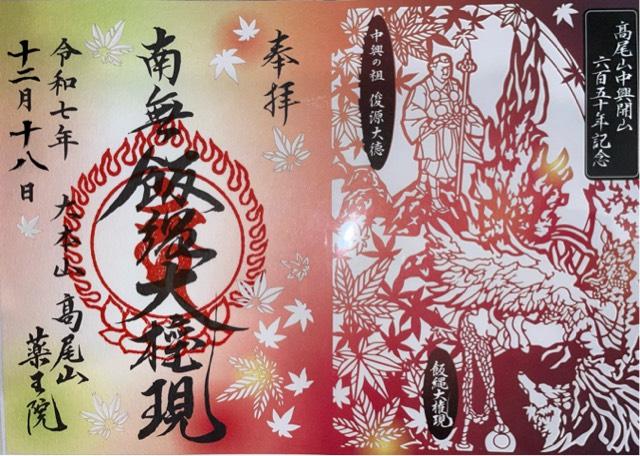 高尾山中興開山
六百五十年記念
中興の祖 俊源大徳
飯縄大権現
奉拝
南無飯縄大権現
大本山 高尾山
薬王院
令和七年
十二月十八日